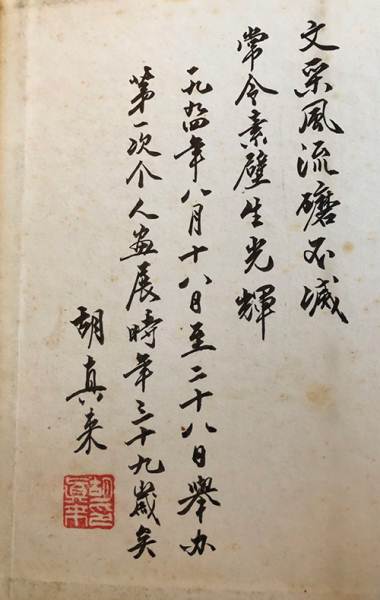 文采風流磨不滅
常令素壁生光輝
一九九四年八月十八日至二十八日舉办
第一次个人畫展時年三十九歲矣
胡真来
胡真来印